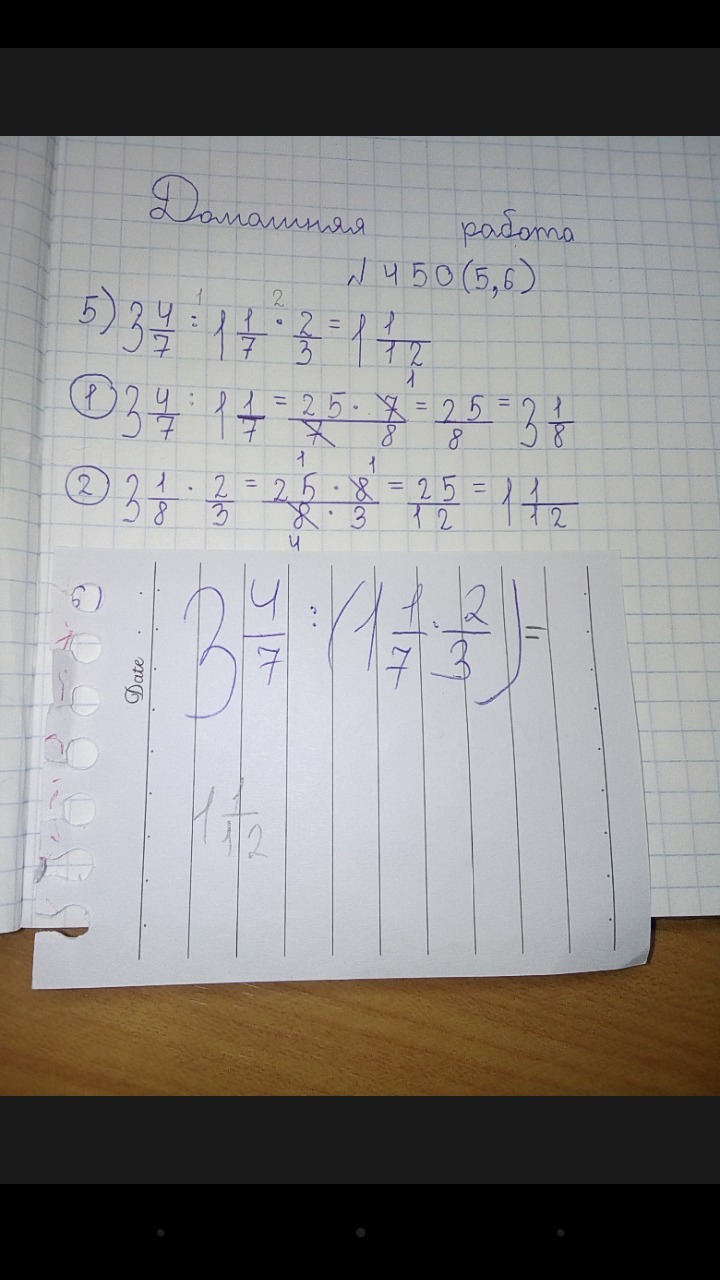 Домашняя работа
№ 450(5,6)
5) 3 4/7 : 1 1/7 · 2/3 = 1 1/12
① 3 4/7 : 1 1/7 = 25 · 7 / 7 8 = 25/8 = 3 1/8
② 3 1/8 · 2/3 = 25 · 8 / 8 · 3 = 25/12 = 1 1/12
6) 3 4/7 : (1 1/7 · 2/3) =
1 1/12
Date